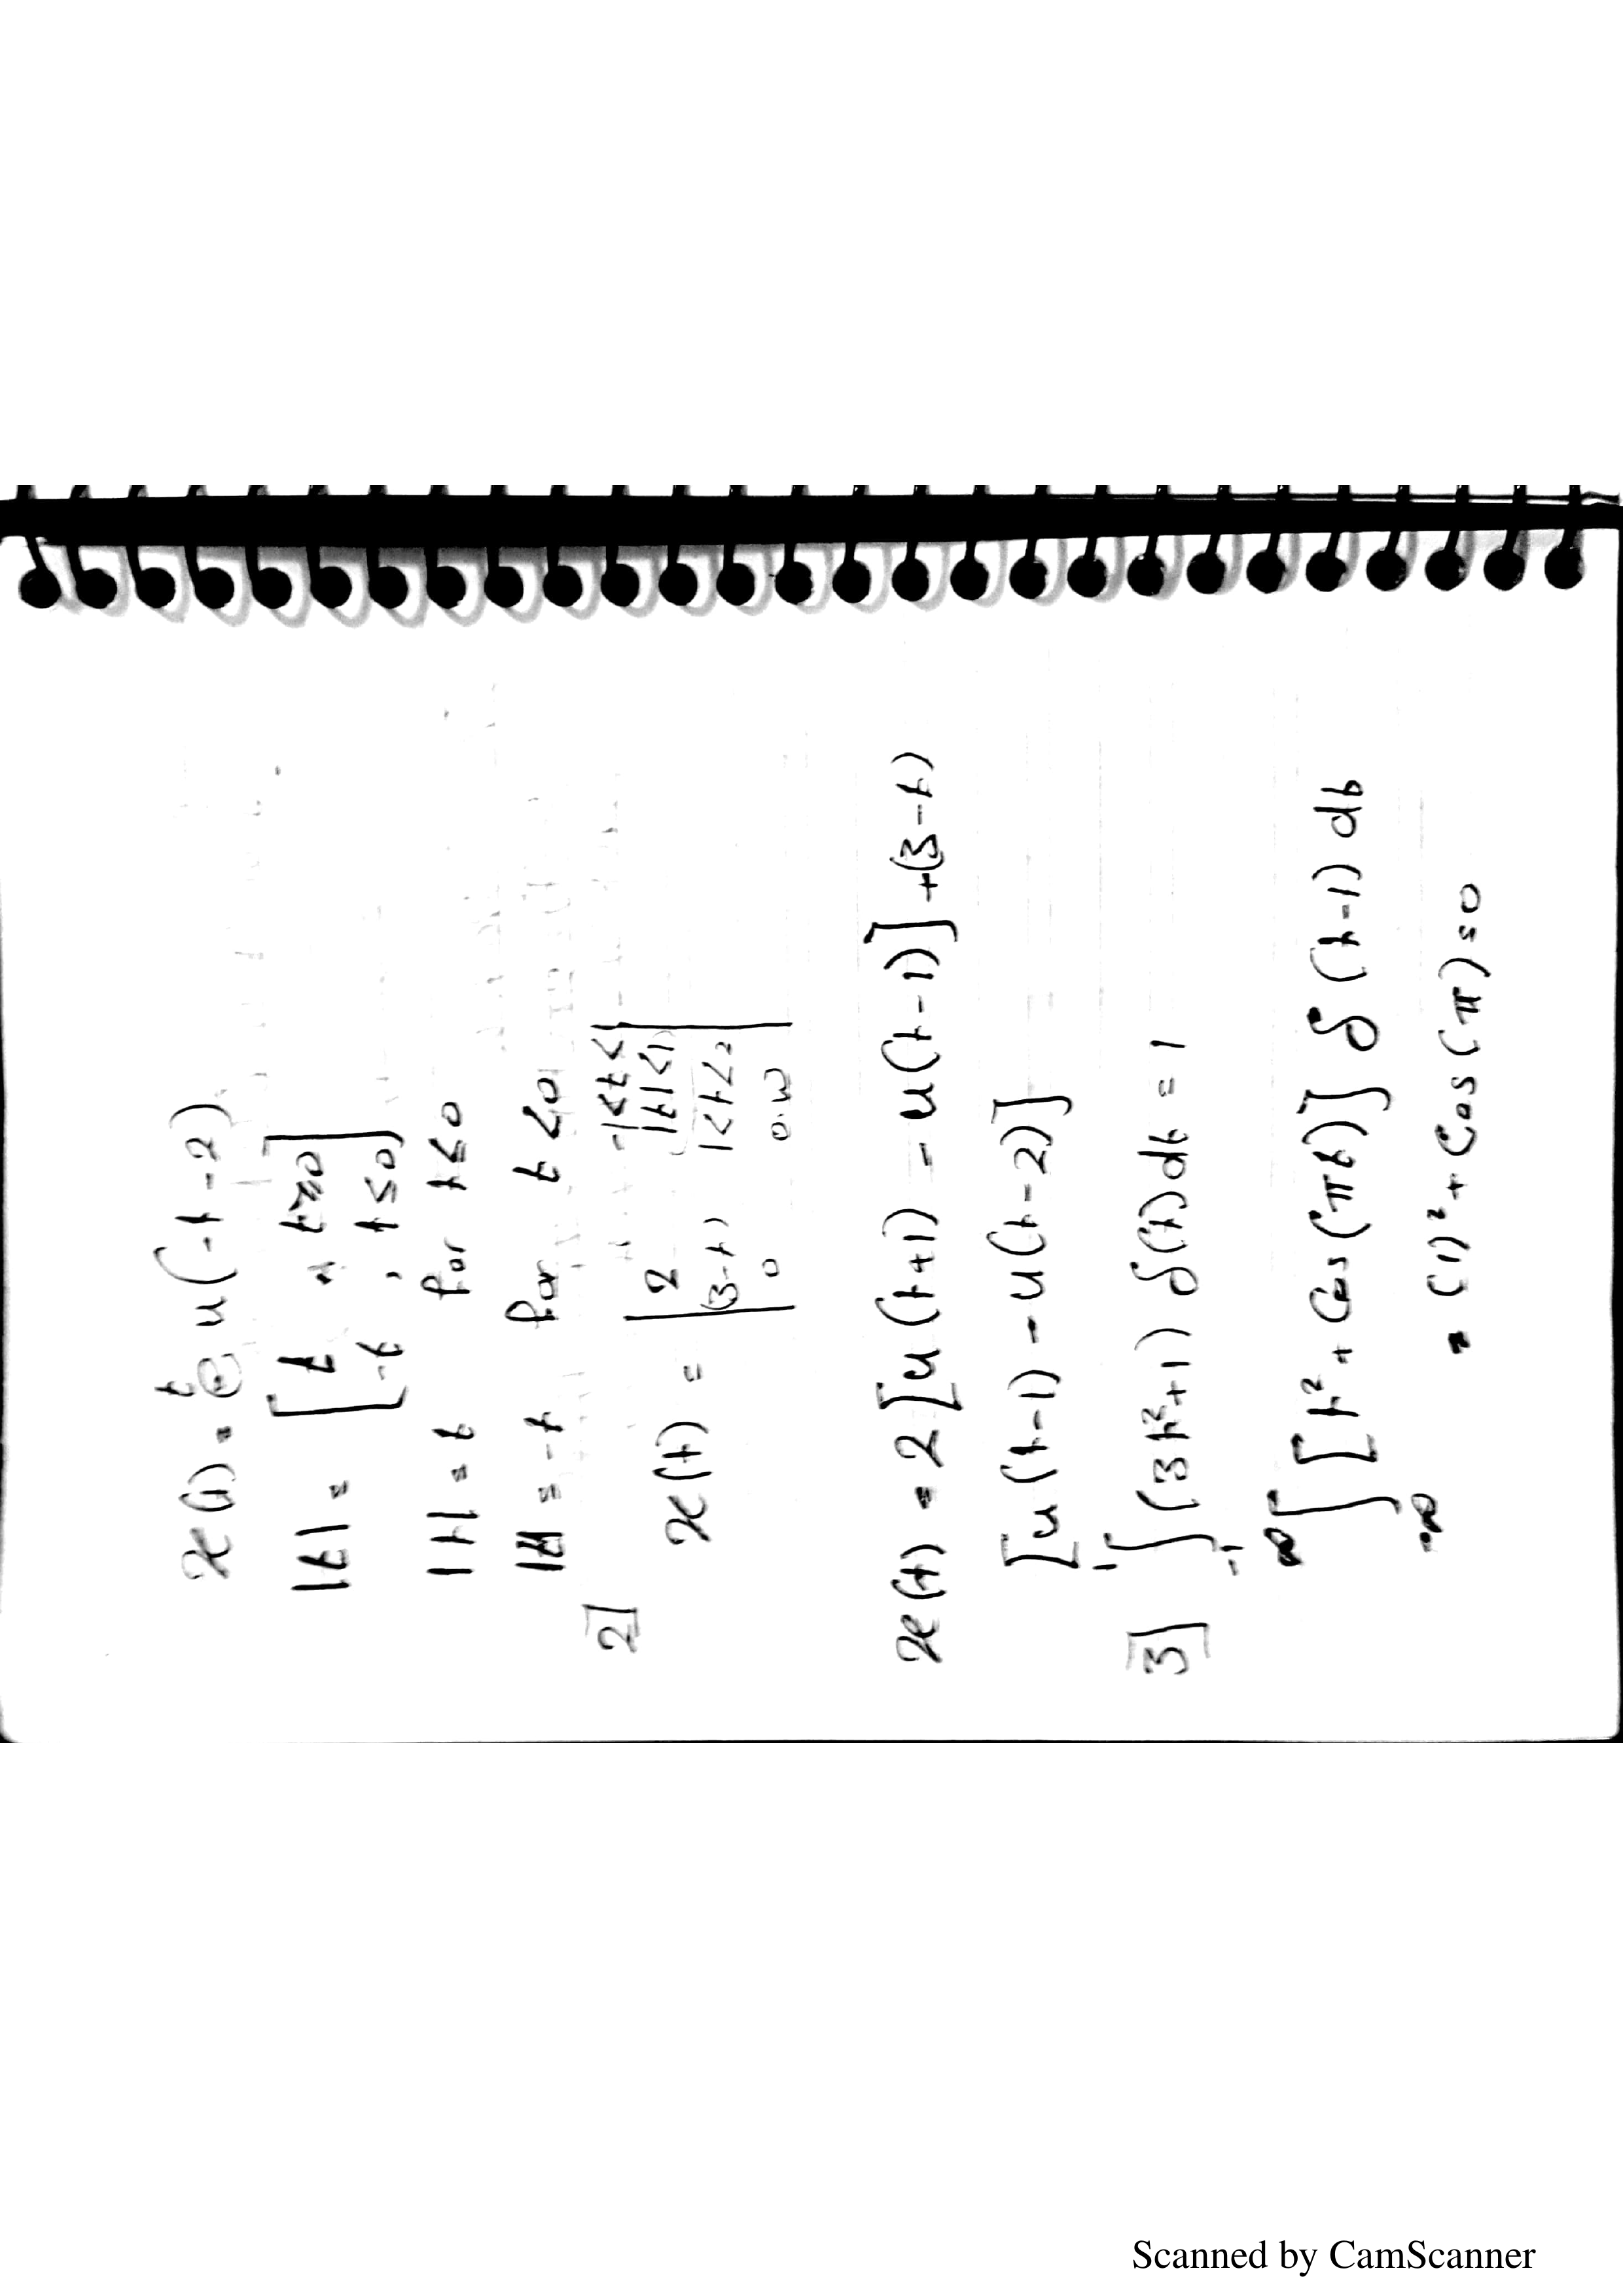 x(t) = e^t u(-t-2)
|t| = [ t , t≥0
-t , t≤0 ]
|t| = t for t≤0
|t| = -t for t<0
2]
x(t) = | 2 |t|<1
(3-t) 1<t<2
0 o.w |
x(t) = 2[u(t+1) - u(t-1)] + (3-t)
[u(t-1) - u(t-2)]
3] ∫_{-1}^{1} (3t²+1) δ(t) dt = 1
∫_{-∞}^{∞} [t² + Cos(πt)] δ(t-1) dt
= (1)² + Cos(π) = 0
Scanned by CamScanner